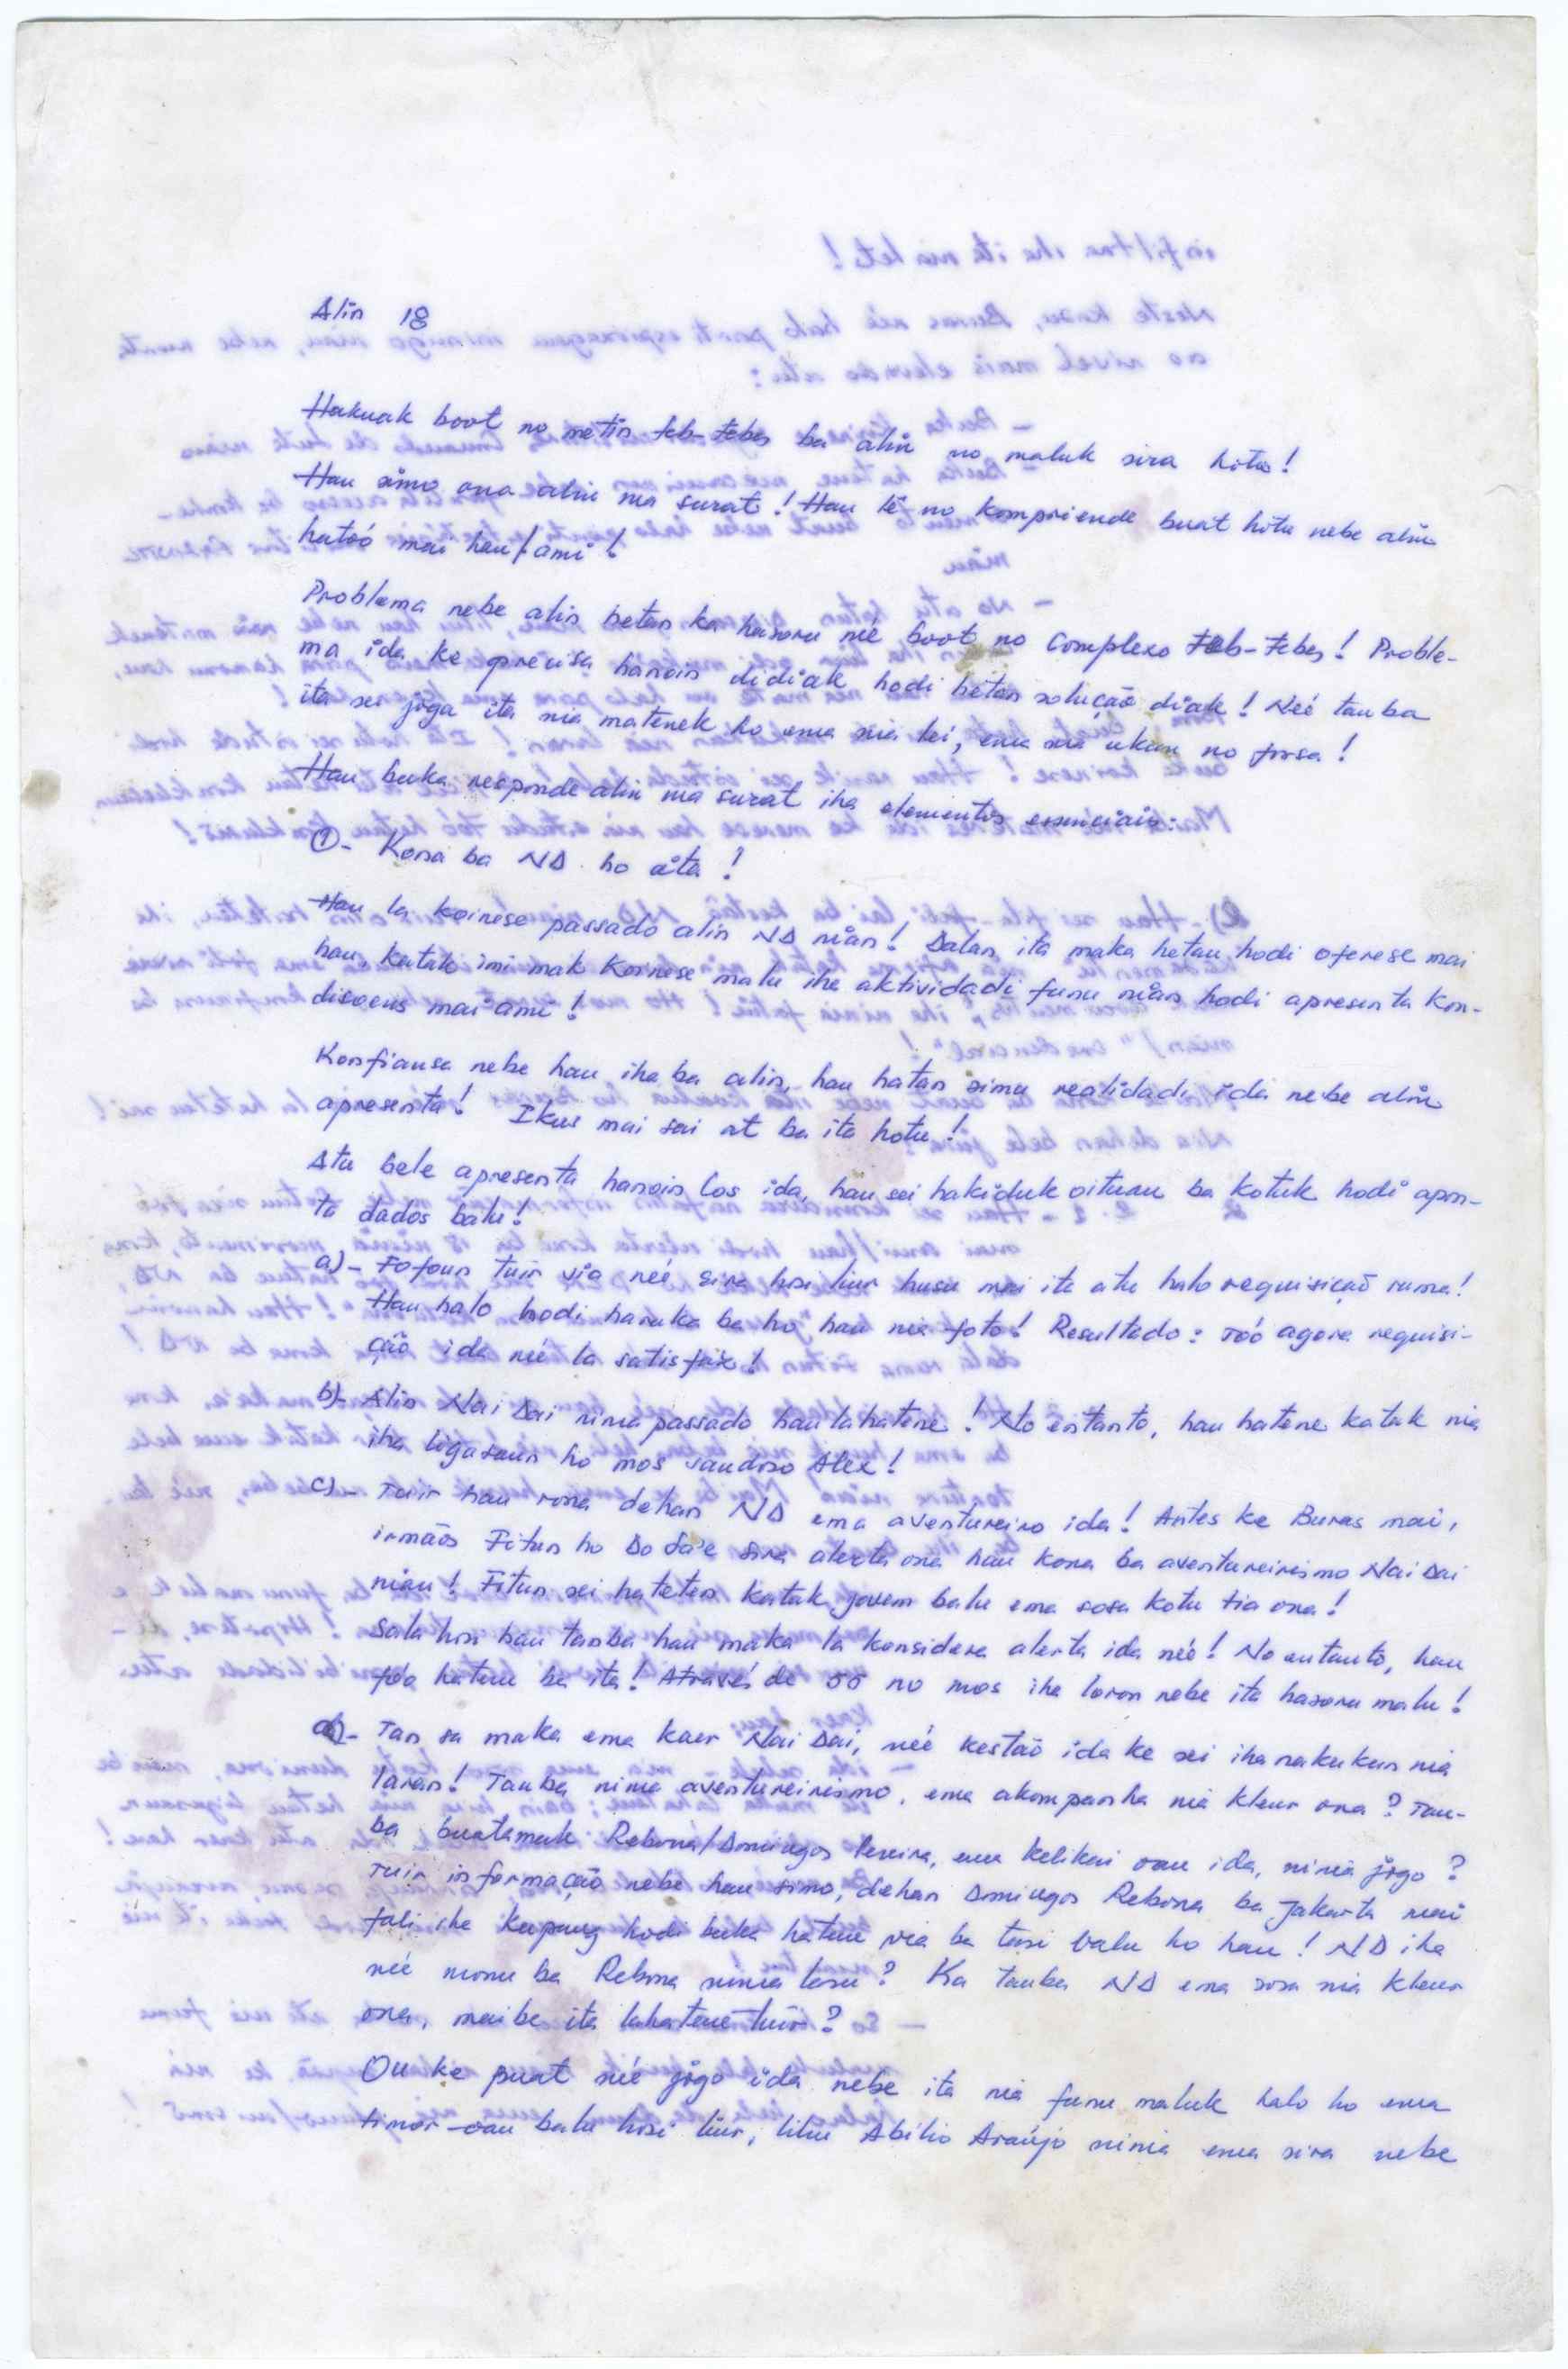 Alin 18
Hakuak boot no metin teb-tebes ba alin no maluk sira hotu!
Hau simo ona alin nia surat! Hau lê no kompriende buat hotu nebe alin
hatoó mai hau/ami!
Problema nebe alin hetan ka hasoru né boot no complexo teb-tebes! Proble-
ma ida ke precisa hanoin didiak hodi hetan solução diak! Neé tanba
ita sei jôga ita nia matenek ho ema nia lei, ema nia ukun no forsa!
Hau buka responde alin nia surat iha elementos essenciais:
①- Kona ba ND ho ata!
Hau la koinese passado alin ND nian! Dalan ita maka hetan hodi oferese mai
hau, katak imi mak koinese malu iha aktividadi funu nian hodi apresenta kon-
disoens mai ami!
Konfiansa nebe hau iha ba alin, hau hatan simu realidadi ida nebe alin
apresenta! Ikus mai sai at ba ita hotu!
Atu bele apresenta hanoin los ida, hau sei hakiduk oituan ba kotuk hodi apon-
ta dados balu!
a)- Fofoun tuir via neé sira hosi liur husu mai ita atu halo requisição ruma!
Hau halo hodi haruka ba ho hau nia foto! Resultado: Toó agora requisi-
ção ida né la satisfaz!
b)- Alin Nai Dai ninia passado hau la hatene! No entanto, hau hatene katak nia
iha ligasaun ho mos saudoso Alex!
c)- Tuir hau rona dehan ND ema aventureiro ida! Antes ke Buras mai,
irmãos Fitun ho Do Sa'e sira alerta ona hau kona ba aventureirismo Nai Dai
nian! Fitun sei hateten katak jovem balu ema sosa kotu tia ona!
Sala hosi hau tanba hau maka la konsidera alerta ida neé! No entanto, hau
fó'o hatene ba ita! Através de 55 no mos iha loron nebe ita hasoru malu!
d)- Tan sa maka ema kaer Nai Dai, neé kestão ida ke sei iha nakukun nia
laran! Tanba ninia aventureirismo, ema akompanha nia kleur ona? Tan-
ba buatamak Rebona/Domingos Pereira, ema kelikai oan ida, ninia jôgo?
Tuir informação nebe hau simo, dehan Domingos Rebona ba Jakarta mai
fali iha Kupang hodi buka hatene via ba tasi balu ho hau! ND iha
neé monu ba Rebona ninia lasu? Ka tanba ND ema sosa nia kleur
ona, maibe ita la hatene tuir?
Ou ke buat né jôgo ida nebe ita nia funu maluk halo ho ema
timor-oan balu hosi liur, liliu Abílio Araújo ninia ema sira nebe